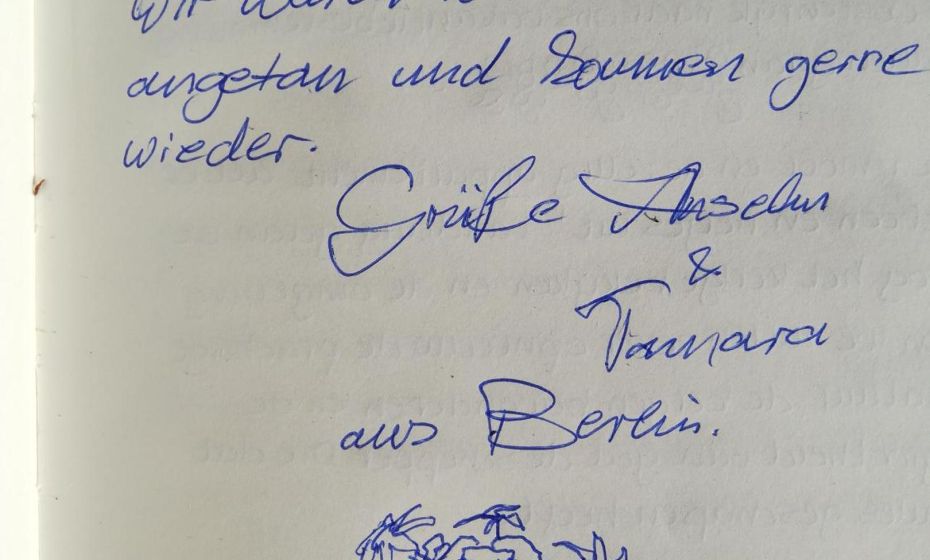 wir waren
angetan und kommen gerne
wieder.
Grüße Anselm
&
Tamara
aus Berlin.